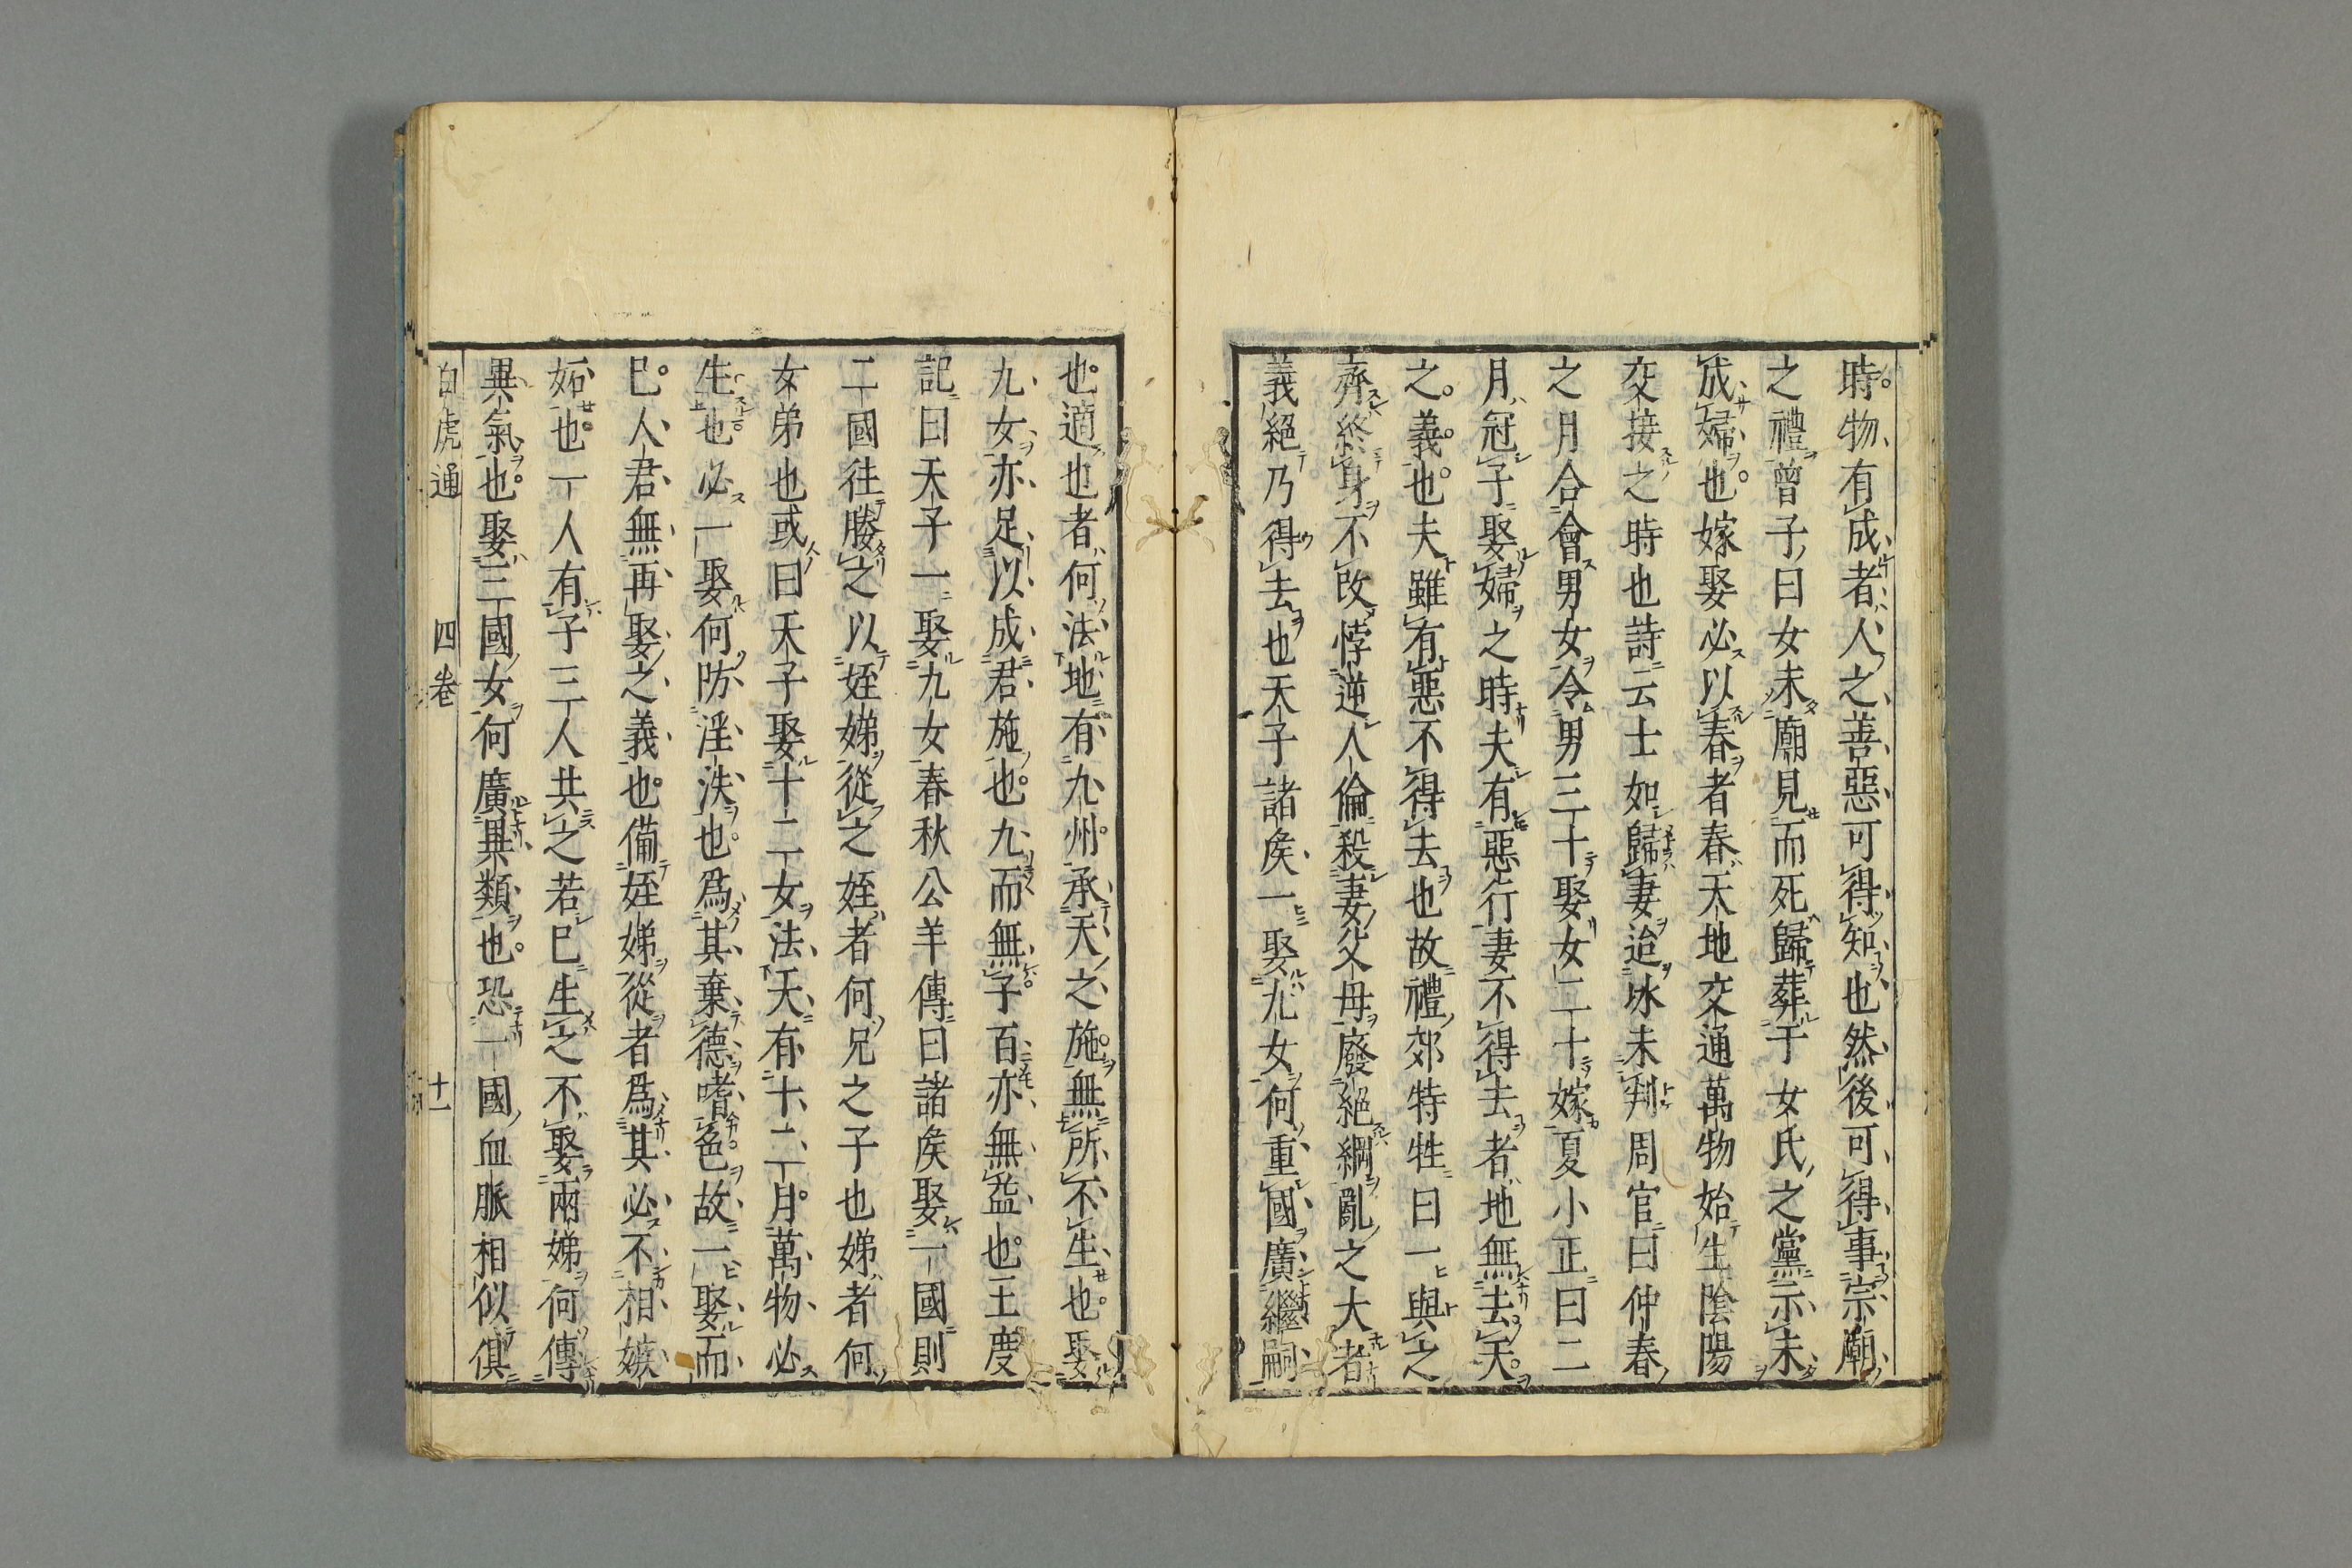 時物有成者人之善惡可得知也然後可得事宗廟
之禮曾子曰女未廟見而死歸葬于女氏之黨示未
成婦也嫁娶必以春者春天地交通萬物始生陰陽
交接之時也詩云士如歸妻迨冰未判周官曰仲春
之月合會男女令男三十娶女二十嫁夏小正曰二
月冠子娶婦之時夫有惡行妻不得去者地無去天
之義也夫雖有惡不得去也故禮郊特牲曰一與之
齊終身不改悖逆人倫殺妻父母廢絕綱亂之大者
義絕乃得去也天子諸矦一娶九女何重國廣繼嗣
也適也者何法地有九州承天之施無所不生也娶
九女亦足以成君施也九而無子百亦無益也王度
記曰天子一娶九女春秋公羊傳曰諸矦娶一國則
二國往媵之以姪娣從之姪者何兄之子也娣者何
女弟也或曰天子娶十二女法天有十二月萬物必
生也必一娶何防淫泆也爲其棄德嗜色故一娶而
已人君無再娶之義也備姪娣從者爲其必不相嫉
妬也一人有子三人共之若已生之不娶兩娣何傳
異氣也娶三國女何廣異類也恐一國血脈相似俱
白虎通 四卷 十一